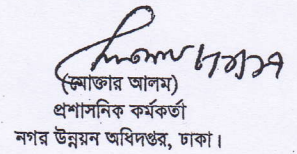 (মোক্তার আলম)
প্রশাসনিক কর্মকর্তা
নগর উন্নয়ন অধিদপ্তর, ঢাকা।